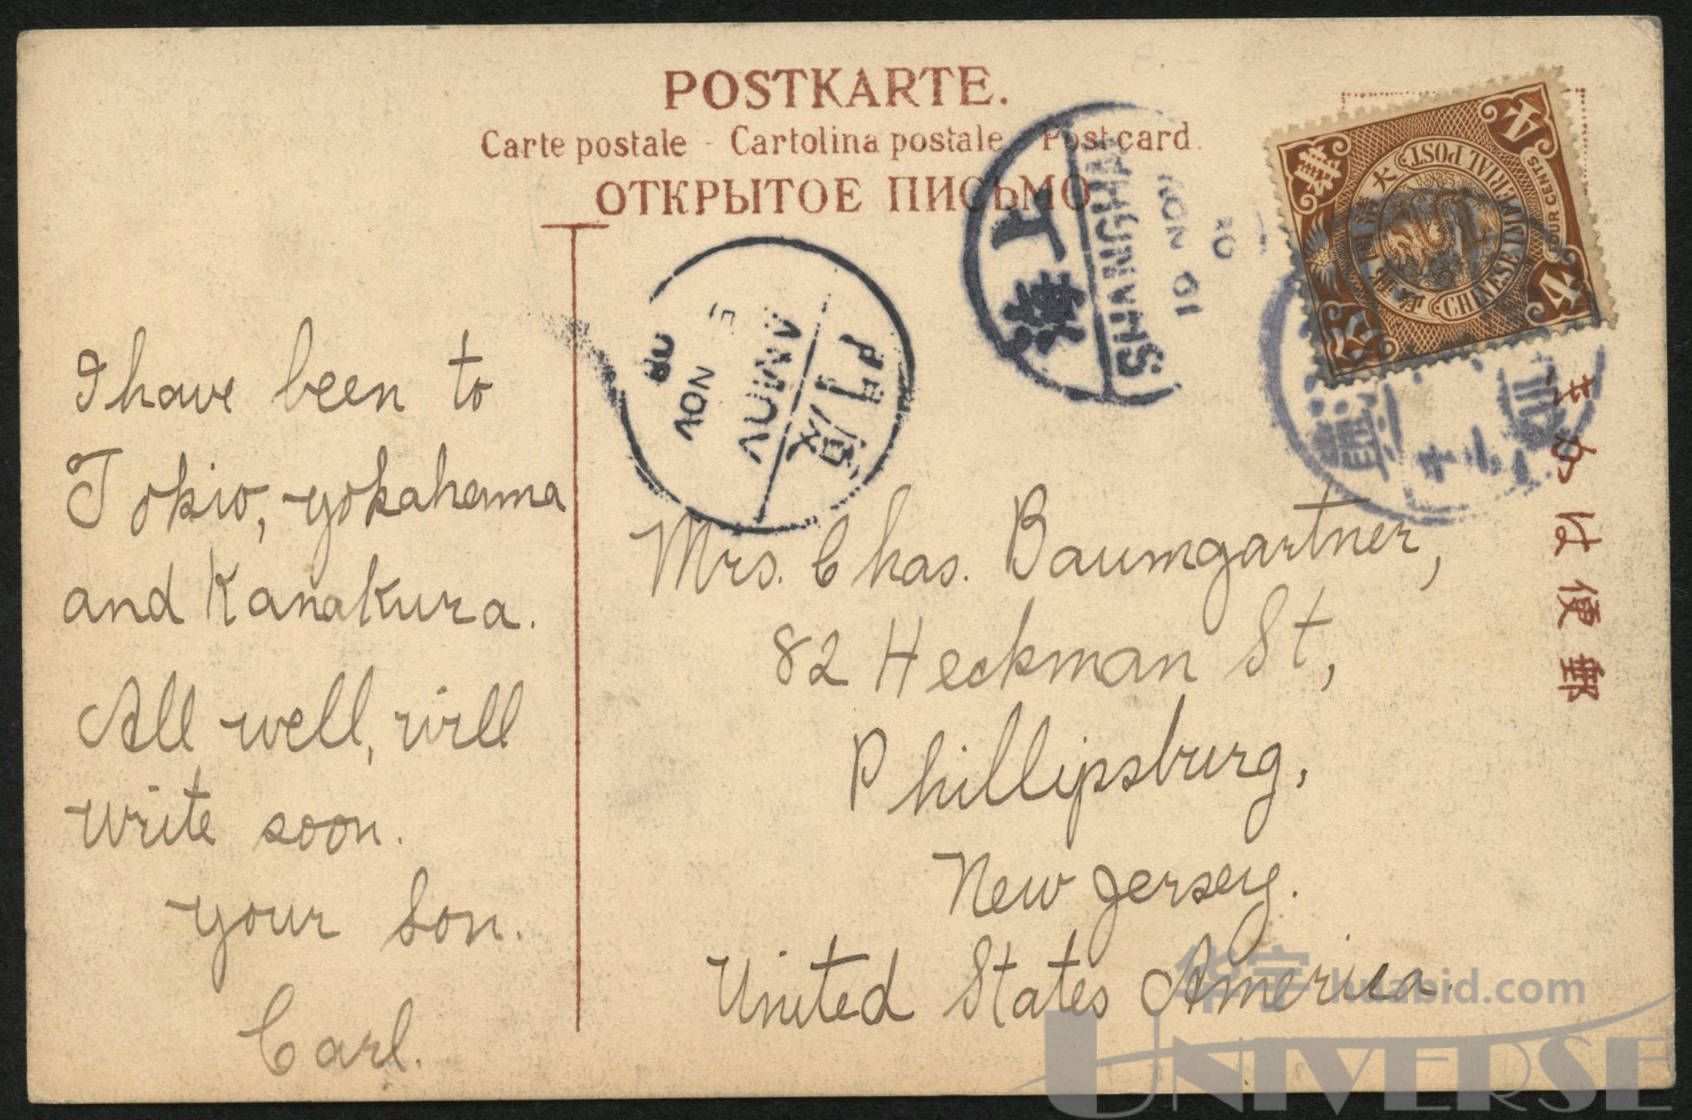 POSTKARTE.
Carte postale - Cartolina postale - Postcard.
ОТКРЫТОЕ ПИСЬМО
I have been to
Tokio, yokahama
and Kanakura.
All well, will
write soon.
your son.
Carl.
Mrs. Chas. Baumgartner,
82 Heckman St,
Phillipsburg,
New Jersey.
United States America.
上海
SHANGHAI
19 NOV
08
廈門
AMOY
NOV
08
CHINESE IMPERIAL POST
FOUR CENTS
4
4
郵便はかき
华宇 huabid.com
UNIVERSE